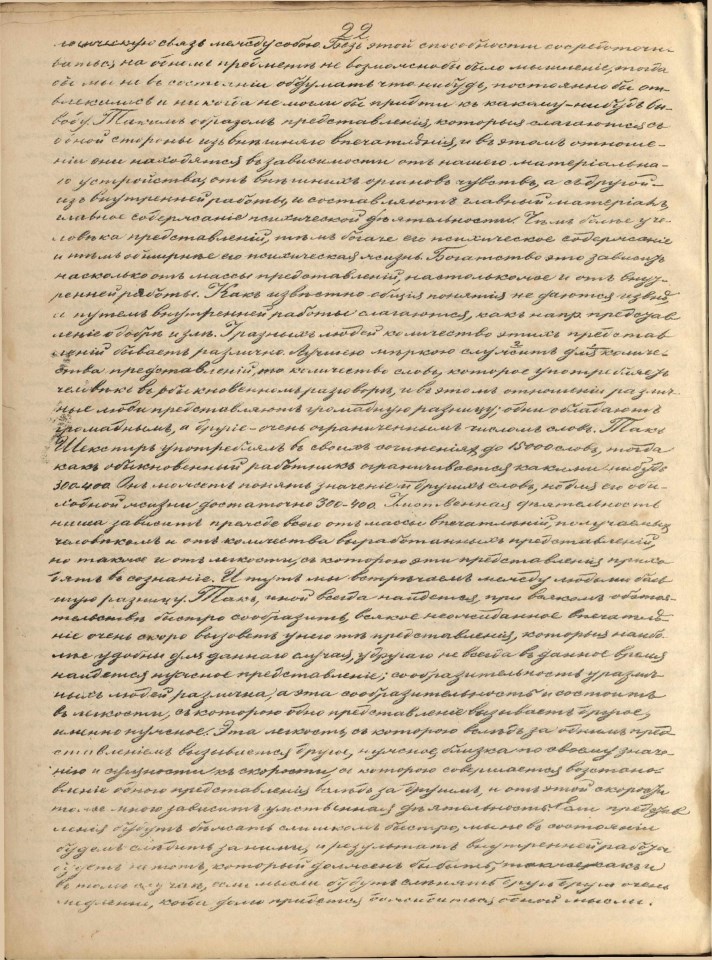 22
логическую связь между собою. Безъ этой способности сосредоточи-
ваться на одномъ предметѣ не возможно бы было мышленіе, тогда
бы мы не въ состояніи обдумать что нибудь, постоянно бы от-
влекались и никогда не могли бы прийти къ какому-нибудь вы-
воду. Такимъ образомъ представленія, которыя слагаются съ
одной стороны изъ внѣшняго впечатлѣнія, и въ этомъ отноше-
ніи они находятся въ зависимости отъ нашего матеріальна-
го устройства, отъ внѣшнихъ органовъ чувствъ, а съ другой-
изъ внутренней работы, и составляютъ главный матеріалъ,
главное содержаніе психической дѣятельности. Чѣмъ болѣе у че-
ловѣка представленій, тѣмъ богаче его психическое содержаніе
и тѣмъ обширнѣе его психическая жизнь. Богатство это зависитъ
насколько отъ массы представленій, настолько же и отъ внут-
ренней работы. Какъ извѣстно общія понятія не даются извнѣ
а путемъ внутренней работы слагаются, какъ напр. представ-
леніе о добрѣ и злѣ. У разныхъ людей количество этихъ представ-
леній бываетъ различно. Лучшею мѣркою служитъ для количе-
ства представленій, то количество словъ, которое употребляетъ
человѣкъ въ обыкновенномъ разговорѣ, и въ этомъ отношеніи различ-
ные люди представляютъ громадную разницу: одни обладаютъ
громаднымъ, а другіе - очень ограниченнымъ числомъ словъ. Такъ
Шекспиръ употреблялъ въ своихъ сочиненіяхъ до 15000 словъ, тогда
какъ обыкновенный работникъ ограничивается какими нибудь
300-400. Онъ можетъ понять значеніе и другихъ словъ, но для его оби-
ходной жизни достаточно 300-400. Умственная дѣятельность
наша зависитъ прежде всего отъ массы впечатлѣній, получаемыхъ
человѣкомъ и отъ количества выработанныхъ представленій,
но также и отъ легкости, съ которою эти представленія прихо-
дятъ въ сознаніе. И тутъ мы встрѣчаемъ между людьми боль-
шую разницу. Такъ, иной всегда найдется, при всякомъ обстоя-
тельствѣ быстро сообразитъ, всякое неожиданное впечатлѣ-
ніе очень скоро вызоветъ у него тѣ представленія, которыя наибо-
лѣе удобны для даннаго случая, у другаго не всегда въ данное время
найдется нужное представленіе; сообразительность у различ-
ныхъ людей различна, а эта сообразительность и состоитъ
въ легкости, съ которою одно представленіе вызываетъ другое,
именно нужное. Эта легкость, съ которою вслѣдъ за однимъ пред-
ставленіемъ вызывается другое, нужное, близка по своему значе-
нію и сущности къ скорости, съ которою совершается возстано-
вленіе одного представленія вслѣдъ за другимъ, и отъ этой скорости
тоже много зависитъ умственная дѣятельность. Если представ-
ленія будутъ бѣжать слишкомъ быстро, мы не въ состояніи
будемъ слѣдить за ними, и результатъ внутренней работы
будетъ не тотъ, который долженъ бы быть, также какъ и
въ томъ случаѣ, если мысли будутъ смѣнять другъ друга очень
медленно, когда долго придется дожидаться одной мысли.